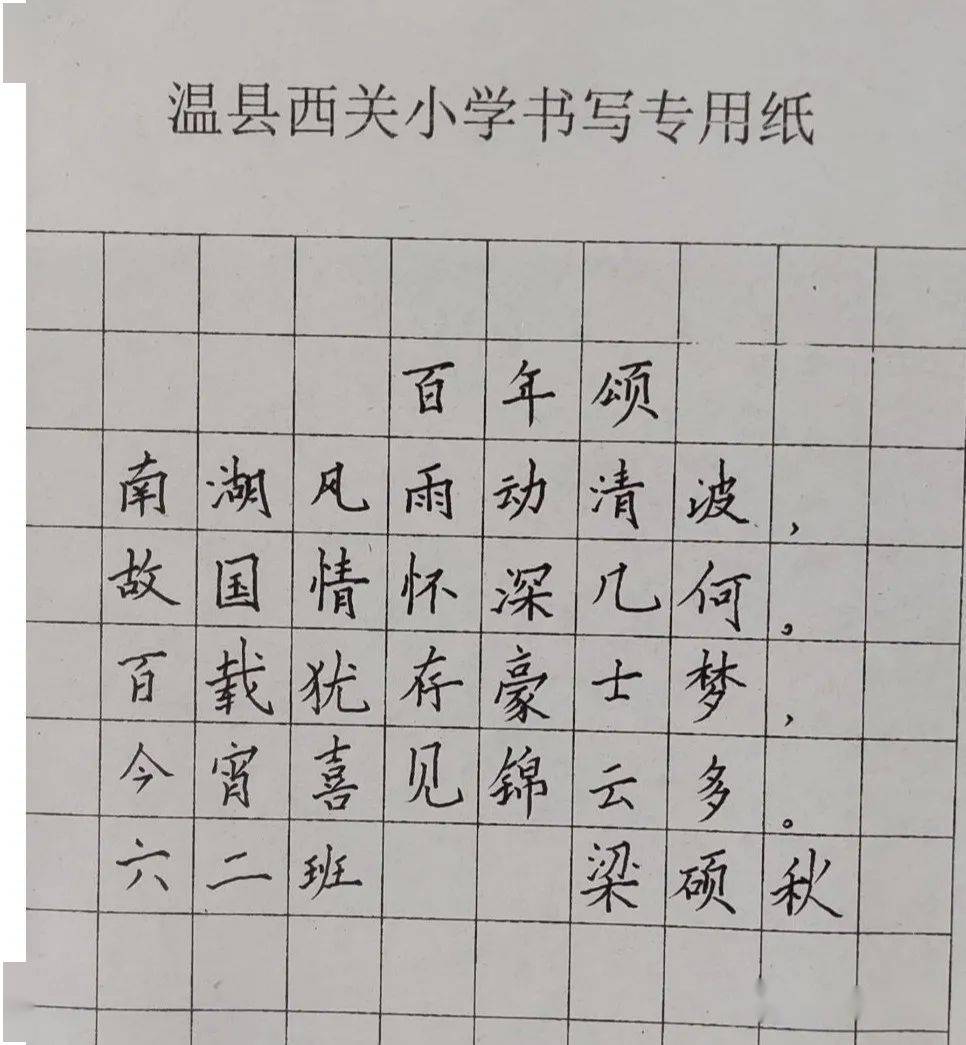 温县西关小学书写专用纸
百年颂
南湖风雨动清波，
故国情怀深几何。
百载犹存豪士梦，
今宵喜见锦云多。
六二班 梁硕秋